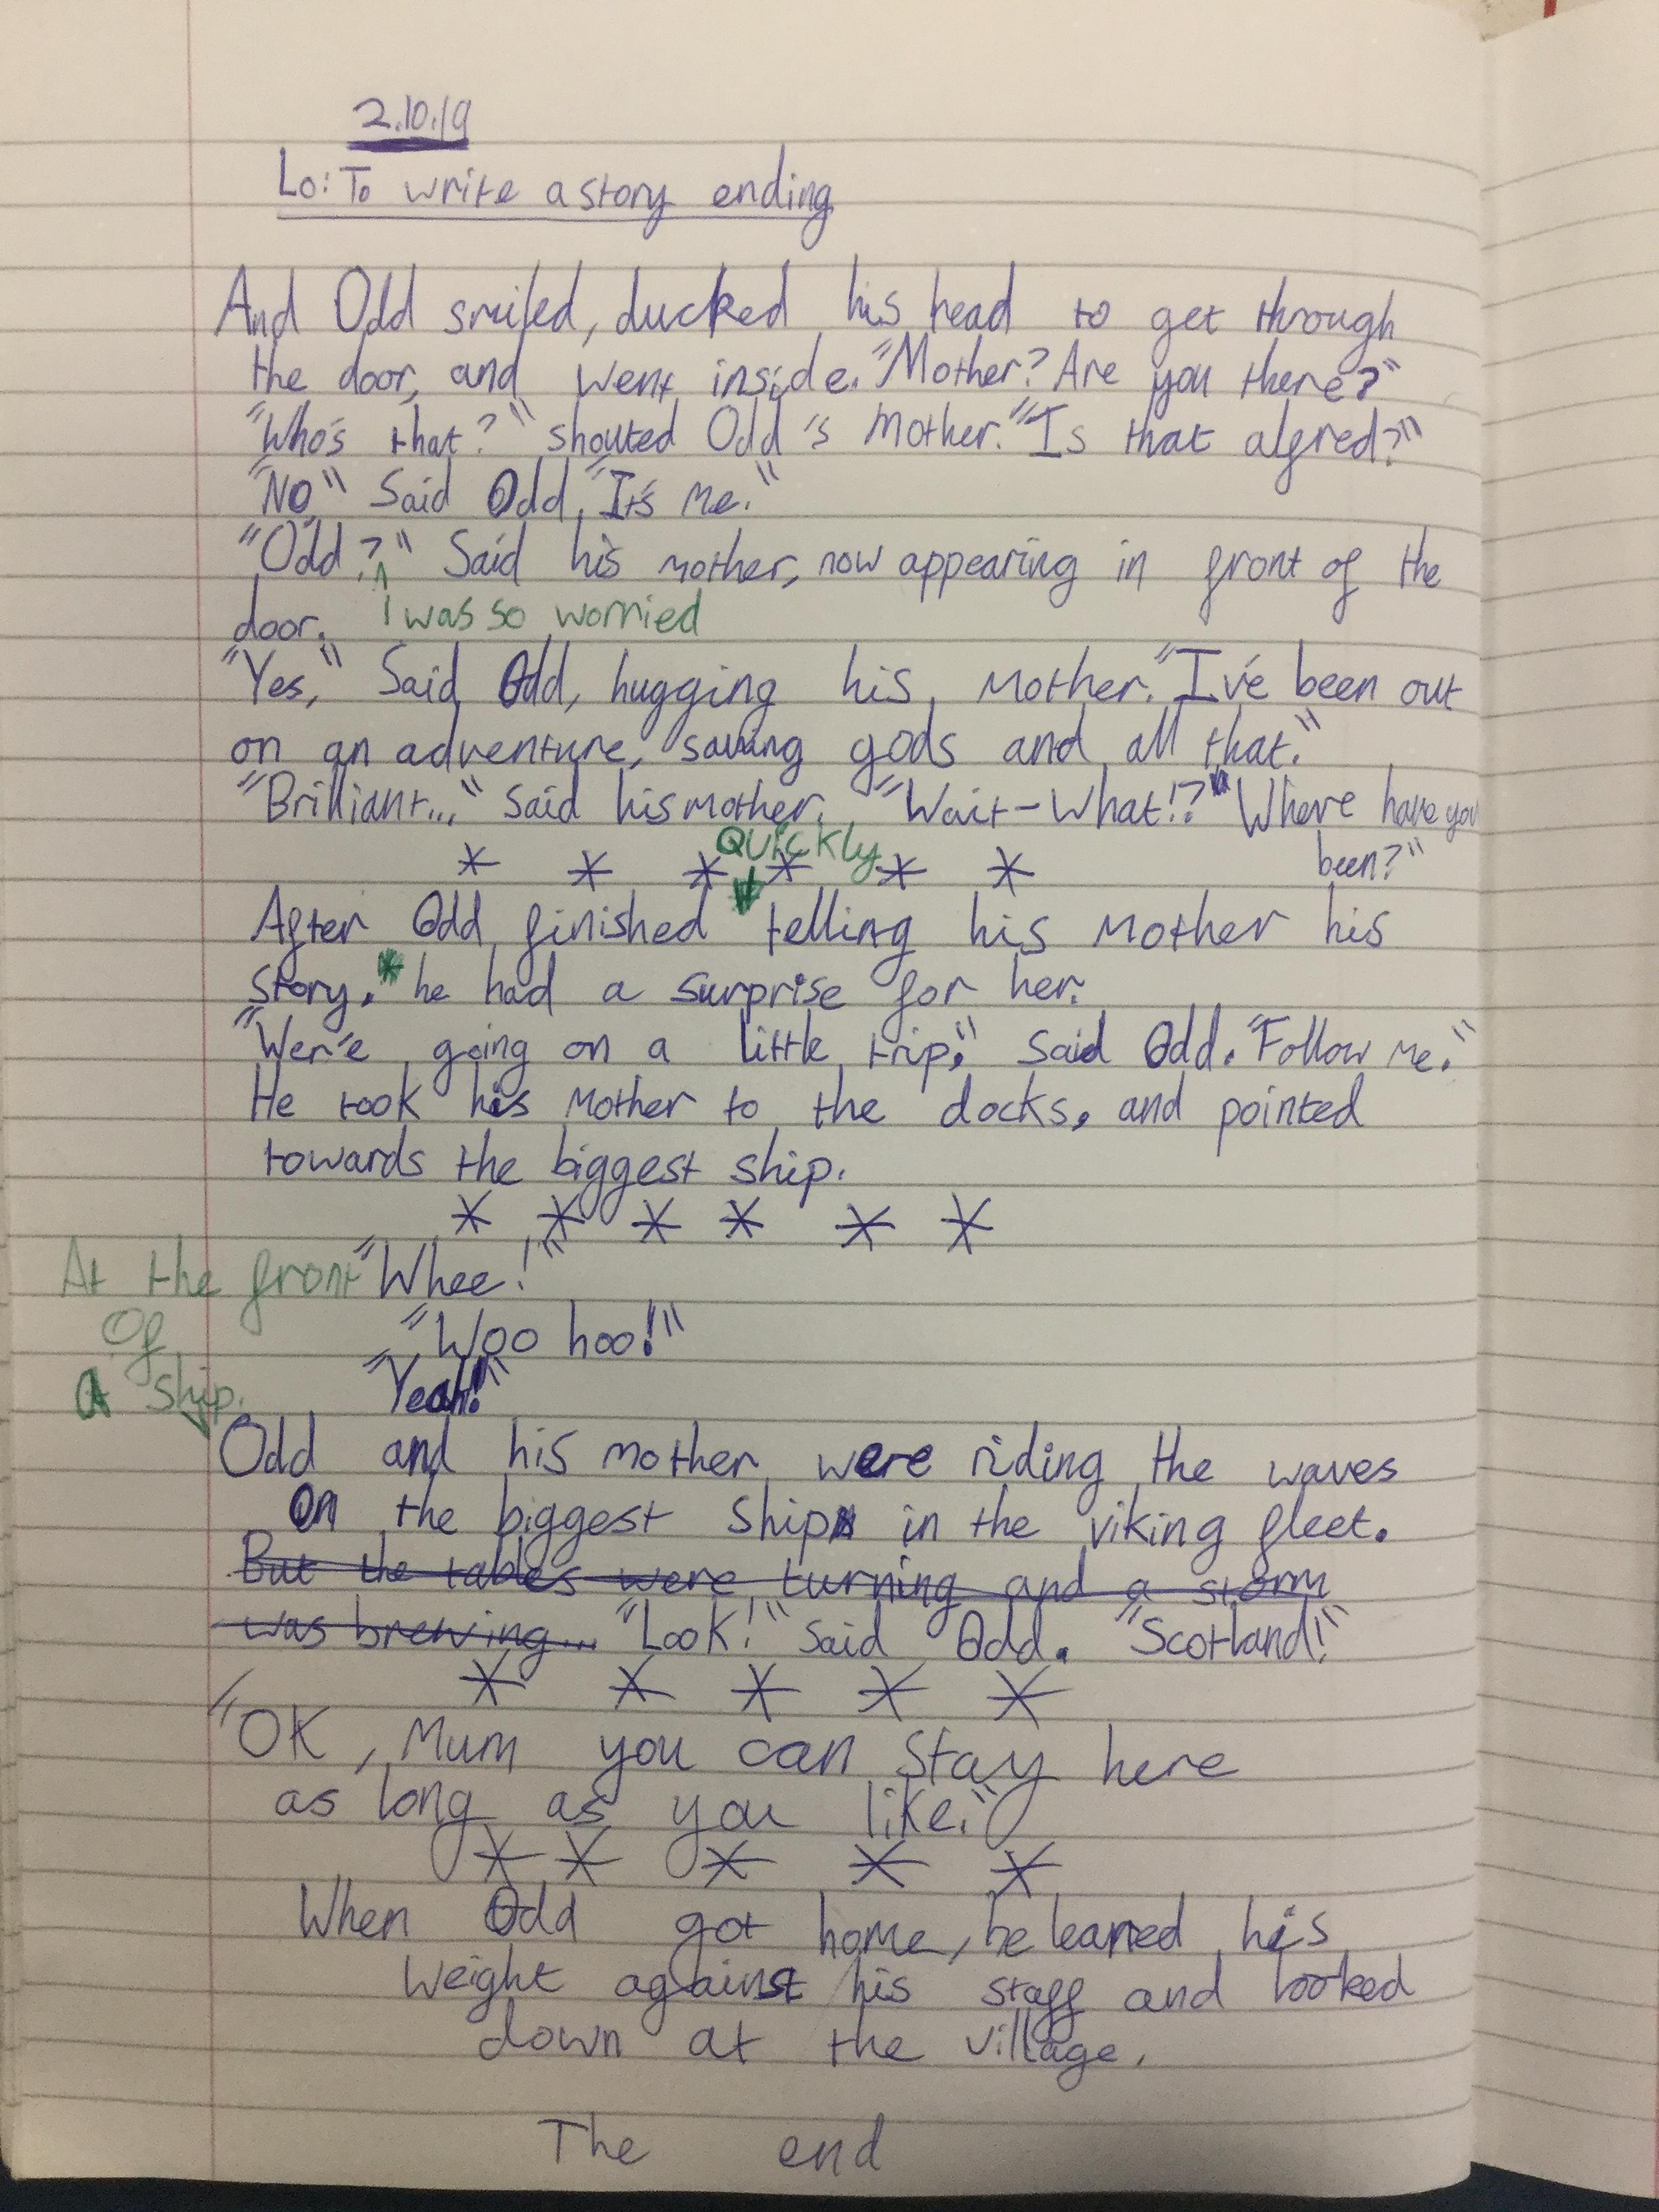 2.10.19
Lo: To write a story ending
And Odd smiled, ducked his head to get through
the door, and went inside. "Mother? Are you there?"
"Who's that?" shouted Odd's Mother. "Is that alfred?"
"No," Said Odd, "It's Me."
"Odd?" Said his mother, now appearing in front of the
I was so worried
door.
"Yes," Said Odd, hugging his Mother. "I've been out
on an adventure, saving gods and all that."
"Brilliant..." Said his mother. "Wait-What!?" "Where have you
been?"
QUickly
* * * * * *
After Odd finished telling his Mother his
Story,* he had a surprise for her.
"Wer'e going on a little trip," Said Odd. "Follow Me."
He took his Mother to the docks, and pointed
towards the biggest ship.
* * * * * *
At the front "Whee!"
Of "Woo hoo!"
A ship. "Yeah!"
Odd and his mother were riding the waves
On the biggest Ship in the viking fleet.
But the tables were turning and a storm
was brewing... "Look!" Said Odd. "Scotland!"
* * * * *
"OK, Mum you can Stay here
as long as you like."
* * * * *
When Odd got home, he leaned his
Weight against his staff and looked
down at the village.
The end